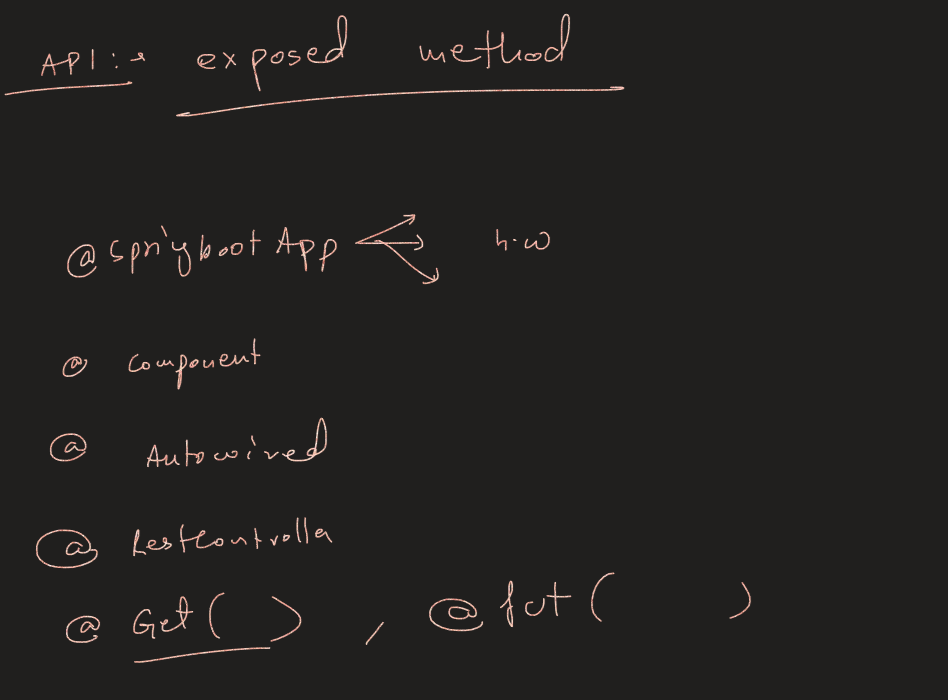 API:→ exposed method
@springboot App h.w
@ Component
@ Autowired
@ RestController
@ Get( ) , @ Put( )